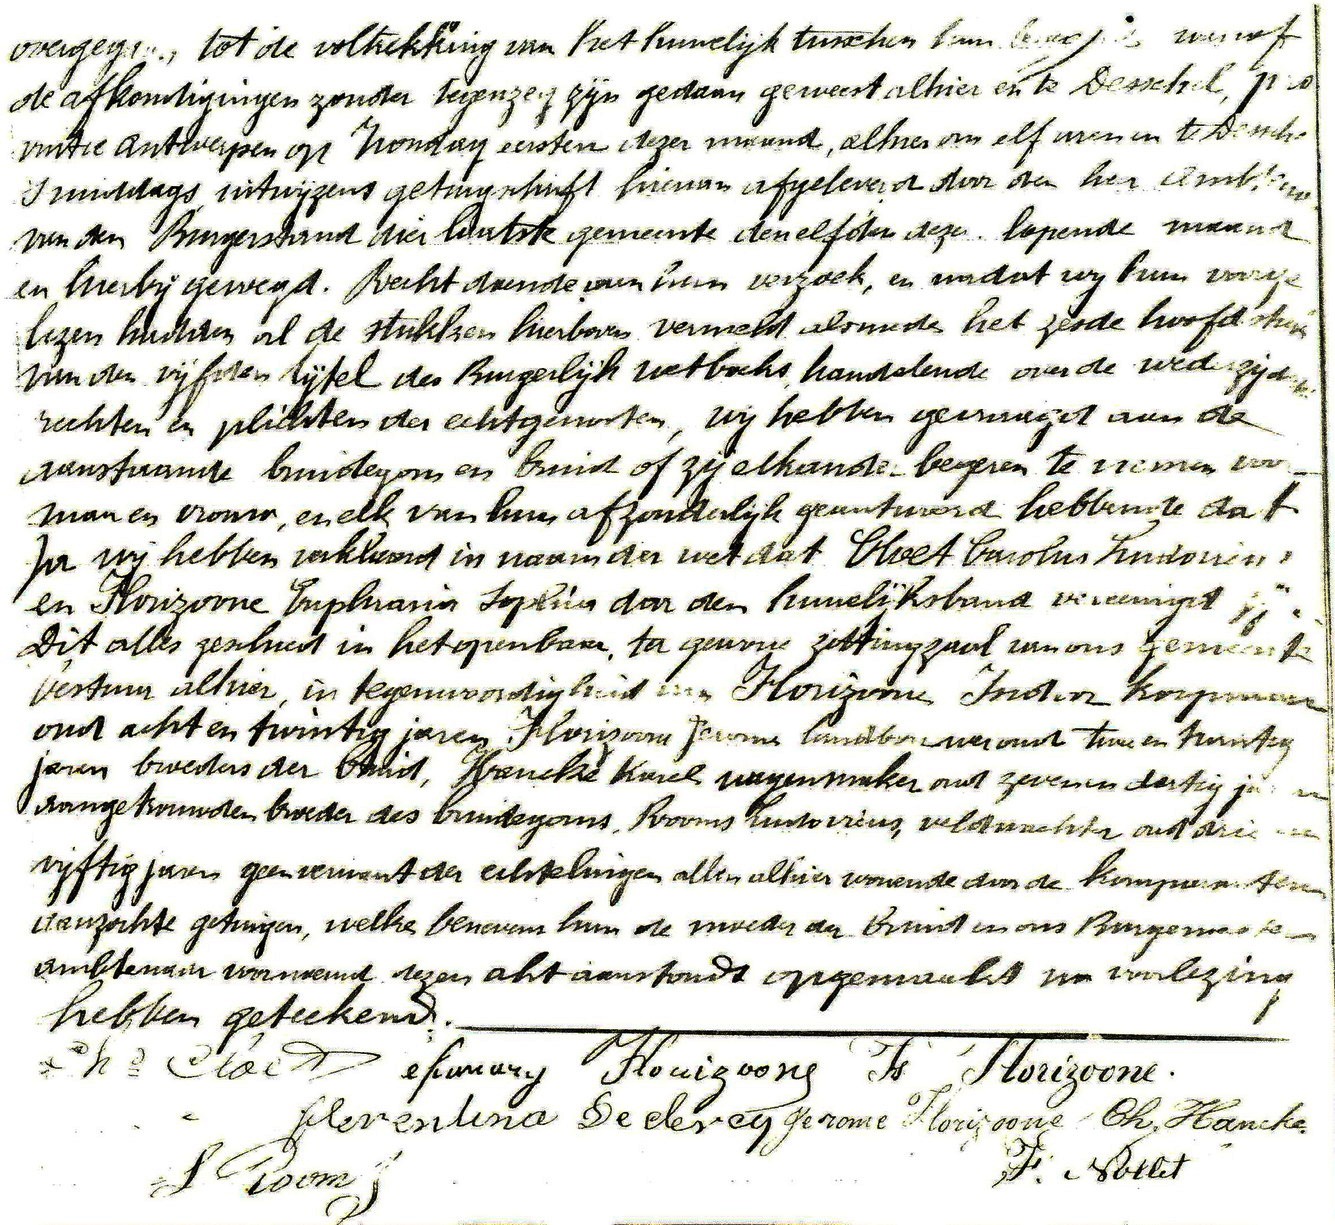 tot de voltrekking van het huwelijk tusschen hun waarvan
de afkondigingen zonder tegenzeg zijn gedaan geweest alhier en te Desschel, pro
vintie Antwerpen op Zondag eersten dezer maand, alhier om elf uren en te Dessche
's middags, uitwijzens getuigschrift hiervan afgeleverd door den heer Ambtena
van den Burgerstand dier laatste gemeente den elfden dezer lopende maand
en hierbij gevoegd. Recht doende aan hun verzoek, en nadat wij hun voorge
lezen hadden al de stukken hierboven vermeld alsmede het zesde hoofdstuk
van den vijfden tijtel des Burgerlijk wetboeks, handelende over de wederzijdsche
rechten en plichten der echtgenooten, wij hebben gevraagd aan de
aanstaande bruidegom en bruid of zij elkander begeren te nemen voor
man en vrouw, en elk van hun afzonderlijk geantwoord hebbende dat
Ja wij hebben verklaard in naam der wet dat Cloet Carolus Ludovicus
en Florizoone Euphrasia Sophia door den huwelijksband vereenigd zijn.
Dit alles geschied in het openbaar, ter gewone zittingzaal van ons gemeente
bestuur alhier, in tegenwoordigheid van Florizoone Isidoor koopman
oud acht en twintig jaren, Florizoone Jerome landbouwer oud twee en twintig
jaren broeders der bruid, Hancke Karel wagenmaker oud zeven en dertig jaren
aangetrouwden broeder des bruidegoms, Rooms Ludovicus, veldwachter oud drie en
vijftig jaren geen verwant der echtelingen allen alhier wonende door de komparanten
aanzochte getuigen, welke benevens hun de moeder der bruid en ons Burgemeester
ambtenaar voornoemd dezen akt aanstonds opgemaakt na voorlezing
hebben geteekend.
Ch Cloet Florizoone Is Florizoone.
Clerentina Declercq Jerome Florizoone Ch. Hancke
L Rooms F. Nollet